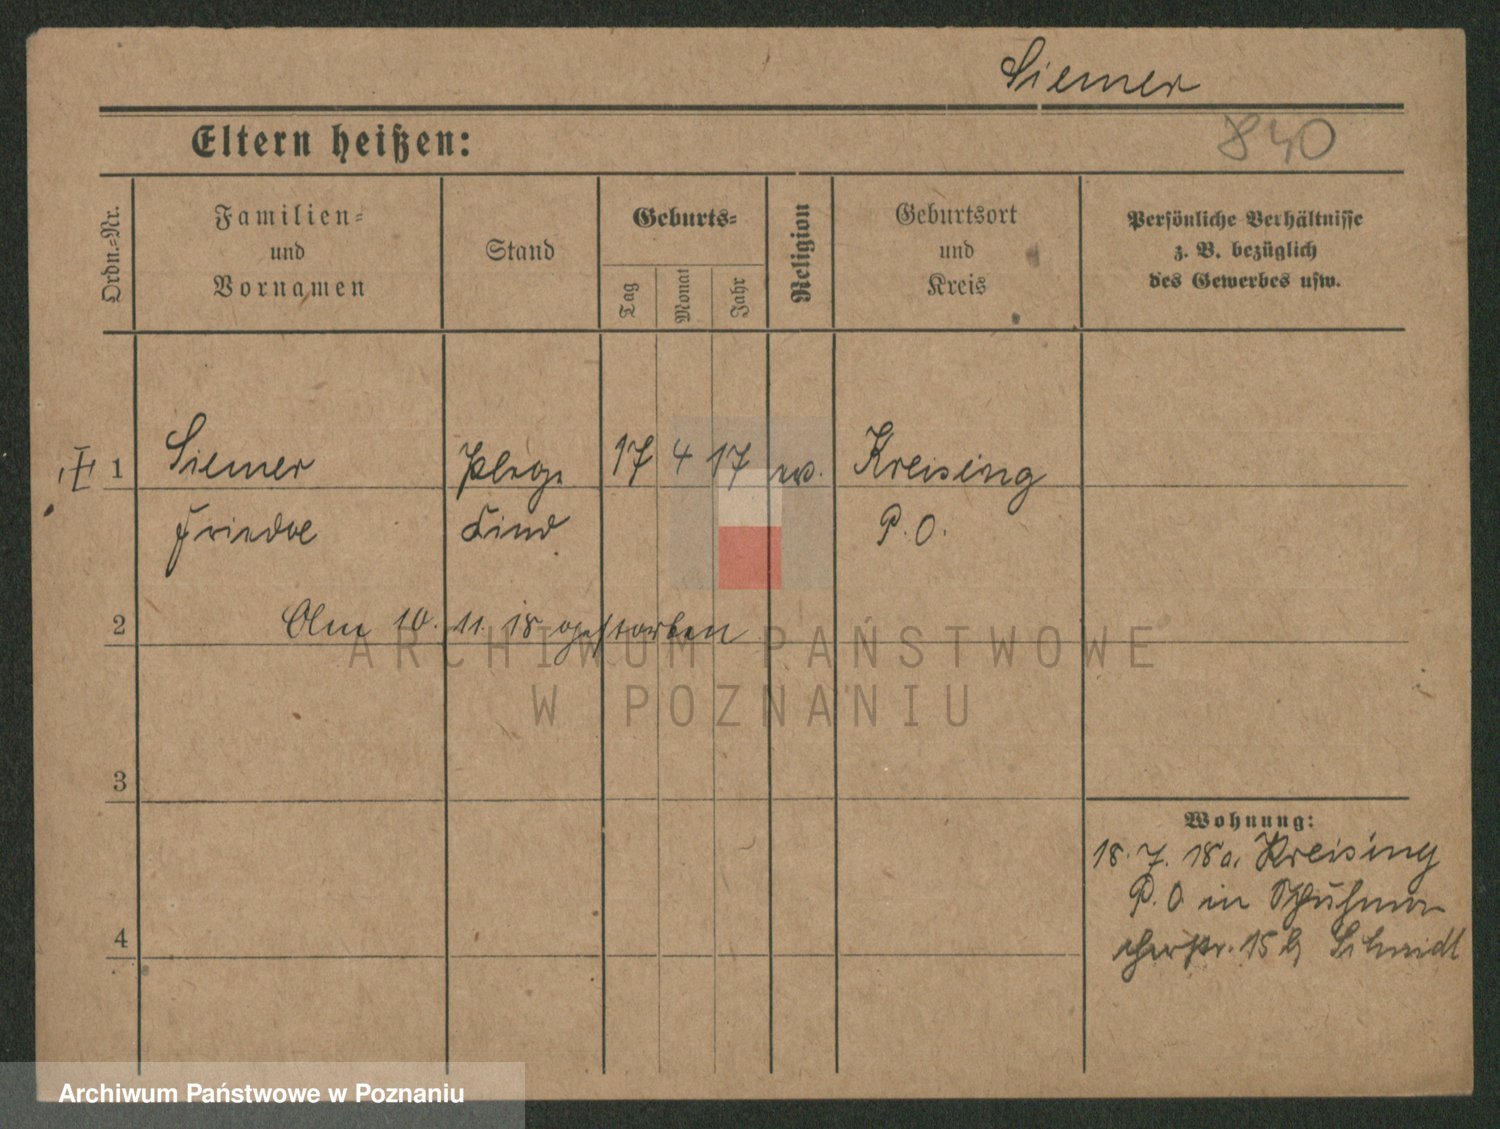 Siemer
Eltern heißen:
840
Ordn.=Nr.
Familien=
und
Vornamen
Stand
Geburts=
Tag
Monat
Jahr
Religion
Geburtsort
und
Kreis
Persönliche Verhältnisse
z. B. bezüglich
des Gewerbes usw.
1
Siemer
Pflege
17
4
17
ev.
Kreising
Kind
P. O.
2
Am 10. 11. 18 gestorben
ARCHIWUM PAŃSTWOWE
W POZNANIU
3
Wohnung:
18. 7. 18 a. Kreising
P. O in Schuhma
cherstr. 15 b Schmidt
4
Archiwum Państwowe w Poznaniu